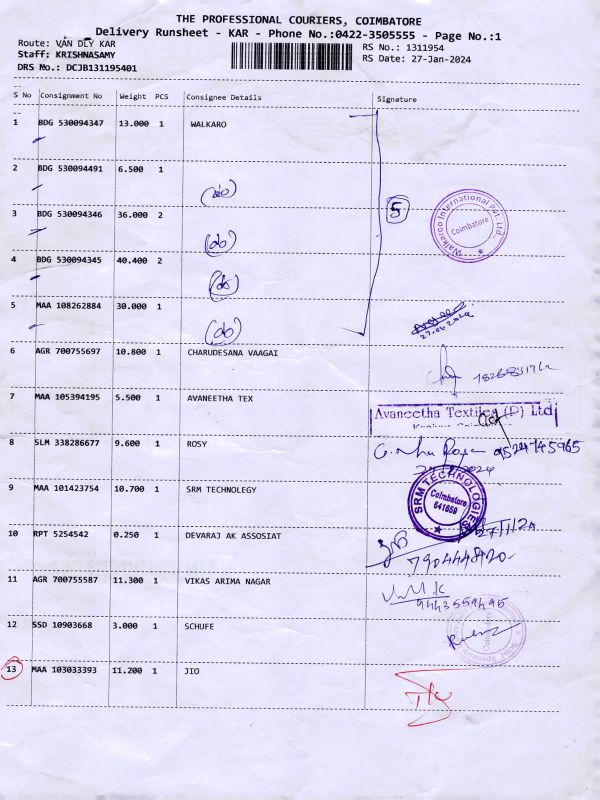 THE PROFESSIONAL COURIERS, COIMBATORE
Delivery Runsheet - KAR - Phone No.:0422-3505555 - Page No.:1
Route: VAN DLY KAR
RS No.: 1311954
Staff: KRISHNASAMY
RS Date: 27-Jan-2024
DRS No.: DCJB131195401
S No Consignment No Weight PCS Consignee Details Signature
1 BDG 530094347 13.000 1 WALKARO
2 BDG 530094491 6.500 1
(do)
5
Walkaroo International Pvt. Ltd.,
Coimbatore
3 BDG 530094346 36.000 2
(do)
4 BDG 530094345 40.400 2
(do)
5 MAA 108262884 30.000 1
(do)
6 AGR 700755697 10.800 1 CHARUDESANA VAAGAI
7 MAA 105394195 5.500 1 AVANEETHA TEX
Avaneetha Textiles (P) Ltd
8 SLM 338286677 9.600 1 ROSY
9524745965
9 MAA 101423754 10.700 1 SRM TECHNOLEGY
SRM TECHNOLOGIES
Coimbatore
641659
10 RPT 5254542 0.250 1 DEVARAJ AK ASSOSIAT
11 AGR 700755587 11.300 1 VIKAS ARIMA NAGAR
9443559495
12 SSD 10903668 3.000 1 SCHUFE
13 MAA 103033393 11.200 1 JIO